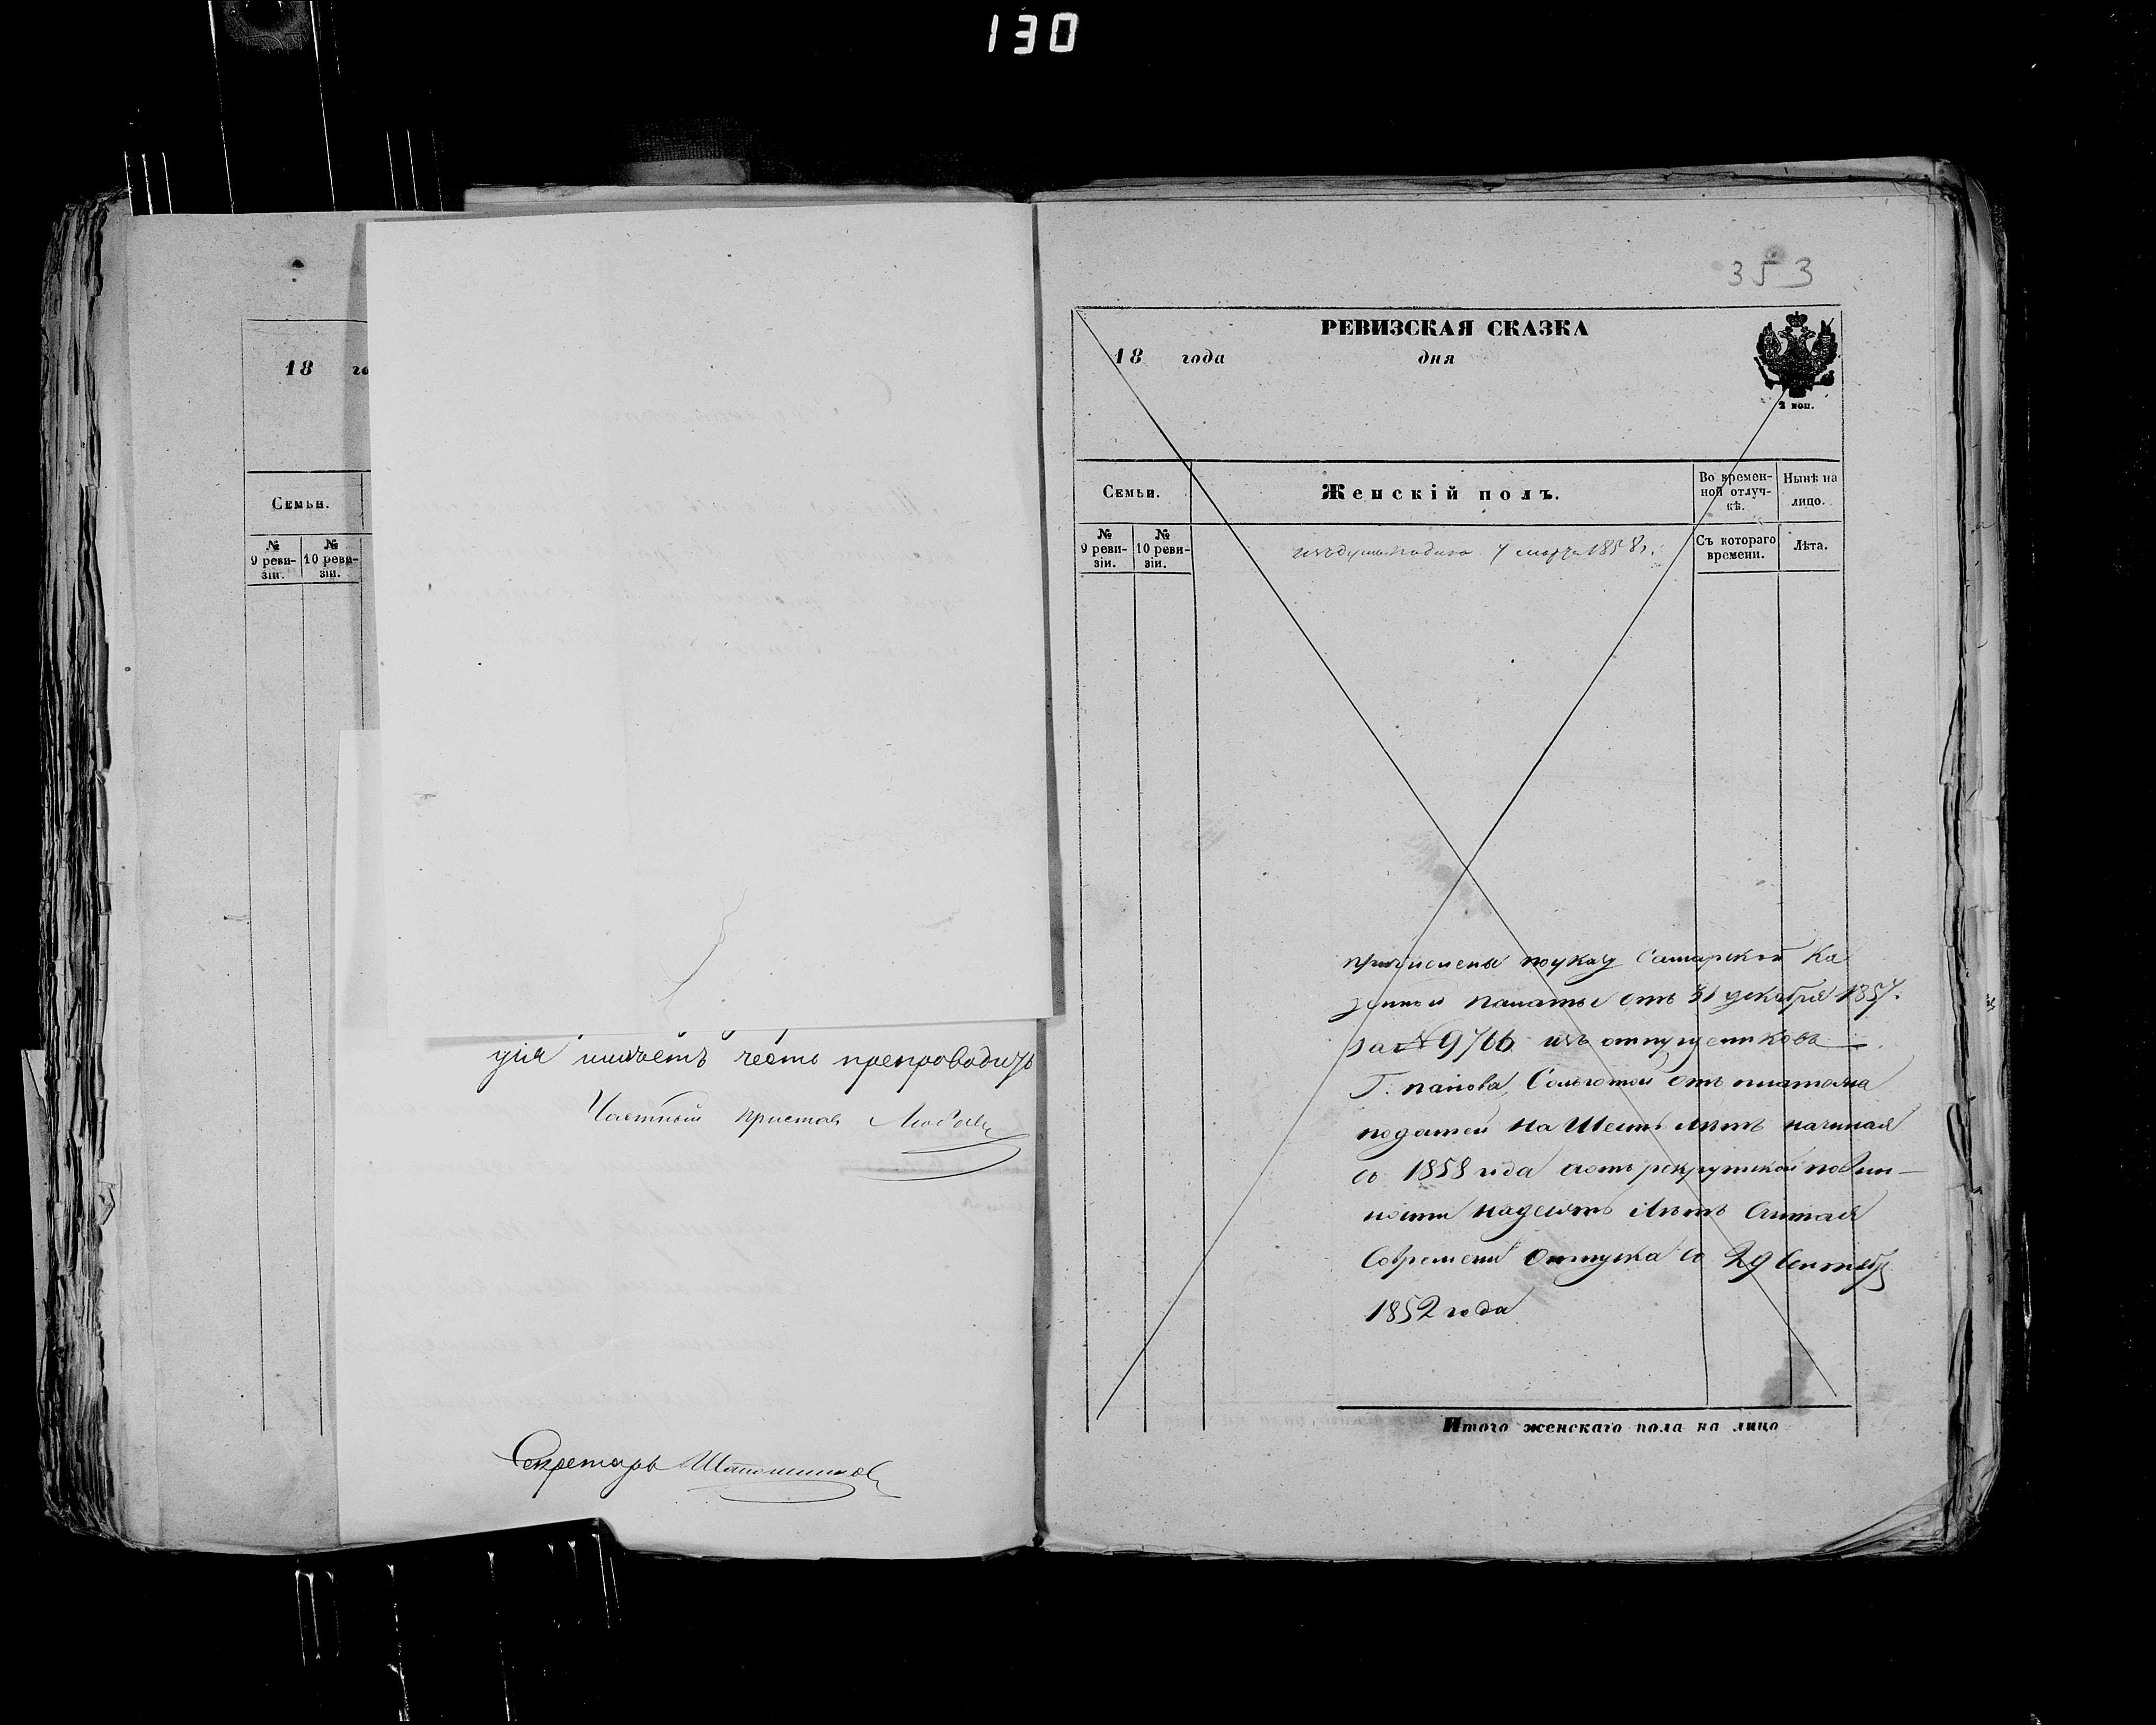 130
18 го
Семьи.
№ 9 реви-зіи.
№ 10 реви-зіи.
уія имѣетъ честь препроводить
Частный приставъ
Секретарь
353
РЕВИЗСКАЯ СКАЗКА
18 года дня
2 коп.
Семьи.
Женскій полъ.
Во времен-ной отлуч-кѣ.
Нынѣ на лицо.
№ 9 реви-зіи.
№ 10 реви-зіи.
Съ котораго времени.
Лѣта.
7 марта 1858 г.
причислены поуказу Самарской Ка
зенной палаты отъ 31 декабря 1857.
за № 9766 изъ отпущенниковъ
Г. панова Сольготой отъ платежа
податей на Шесть лѣтъ начиная
съ 1858 года аотъ рекрутской повин-
ности надесять лѣтъ Считая
Современи отпуска со 29 Сентябр
1852 года
Итого женскаго пола на лицо